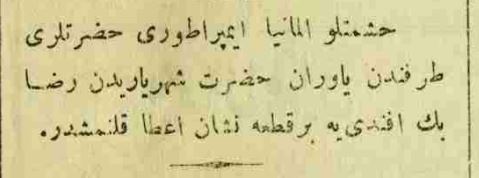 حشمتلو المانیا ایمپراطوری حضرتلری
طرفندن یاوران حضرت شهریاریدن رضا
بك افندی‌یه برقطعه نشان اعطا قلنمشدر.